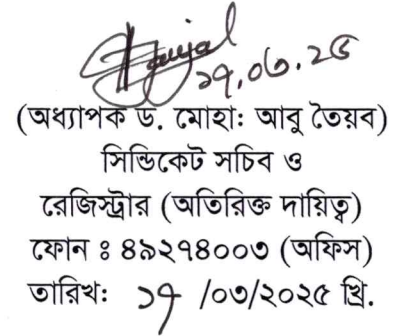 ১৭.০৩.২৫
(অধ্যাপক ড. মোহা: আবু তৈয়ব)
সিন্ডিকেট সচিব ও
রেজিস্ট্রার (অতিরিক্ত দায়িত্ব)
ফোন ঃ ৪৯২৭৪০০৩ (অফিস)
তারিখ: ১৭ /০৩/২০২৫ খ্রি.